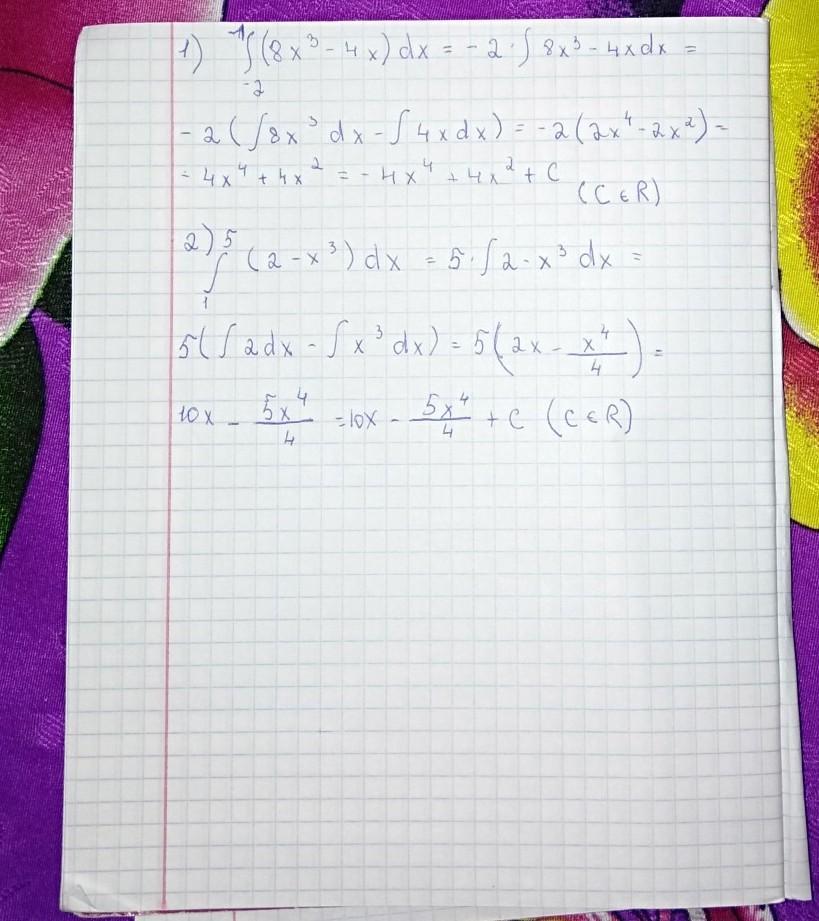 1) ⁻¹∫₋₂ (8x³ - 4x) dx = - 2 · ∫ 8x³ - 4x dx =
- 2 ( ∫ 8x³ dx - ∫ 4x dx ) = - 2 ( 2x⁴ - 2x² ) =
- 4x⁴ + 4x² = - 4x⁴ + 4x² + C (C ∈ R)
2) ⁵∫₁ (2 - x³) dx = 5 · ∫ 2 - x³ dx =
5 ( ∫ 2 dx - ∫ x³ dx ) = 5 ( 2x - x⁴/4 ) =
10x - 5x⁴/4 = 10x - 5x⁴/4 + C (C ∈ R)